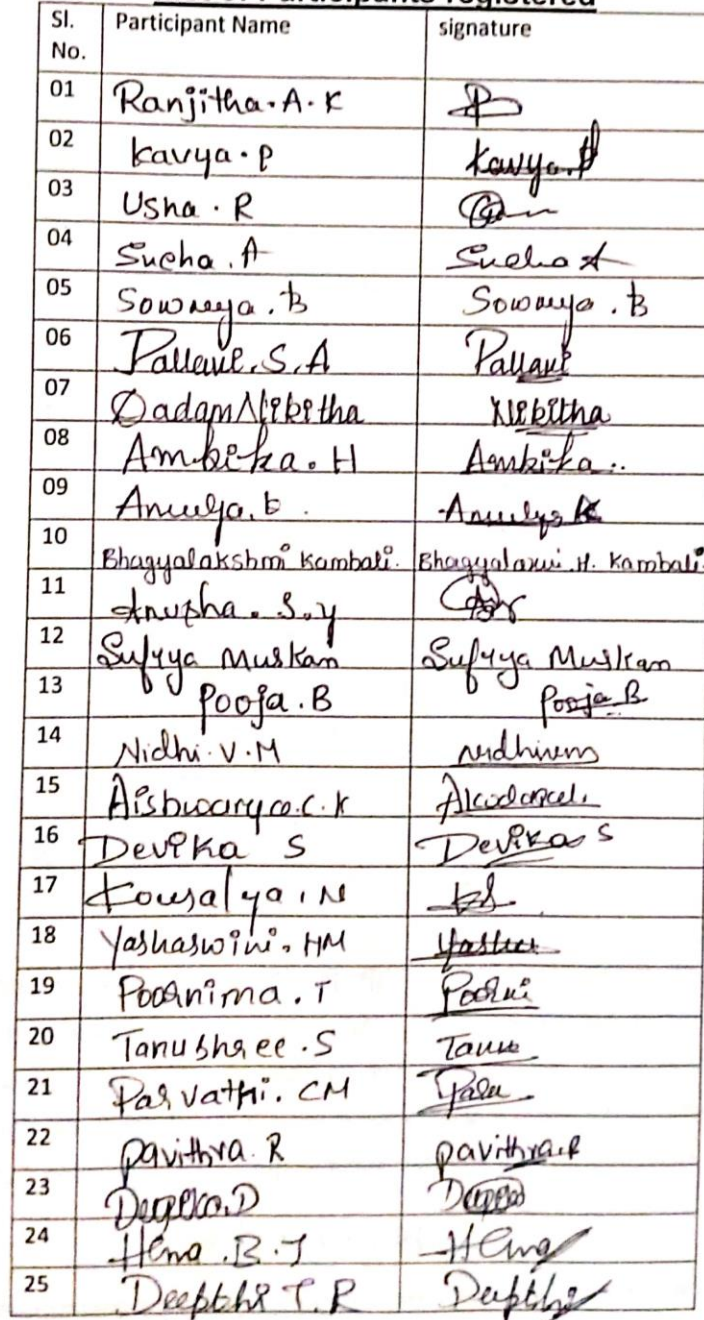 Participants registered
Sl. No. Participant Name signature
01 Ranjitha. A. K
02 Kavya. P Kavya. P
03 Usha. R
04 Sneha. A Sneha A
05 Sowmya. B Sowmya. B
06 Pallavi. S. A Pallavi
07 Qadam Nikitha Nikitha
08 Ambika. H Ambika..
09 Amulya. K. Amulya K
10 Bhagyalakshmi Kambali. Bhagyalaxmi. H. Kambali.
11 Anusha. S. Y
12 Sufiya Muskan Sufiya Muskan
13 Pooja. B Pooja B
14 Nidhi. V. M nidhivm
15 Aishwarya. C. K
16 Devika S Devika S
17 Kousalya. N
18 Yashaswini. HM Yashu
19 Poornima. T Poorni
20 Tanushree. S Tanu
21 Parvathi. CM Paru
22 Pavithra. R pavithra. R
23 Deepika. D
24 Hema. B. J Hema
25 Deepthi T. R Deepthi